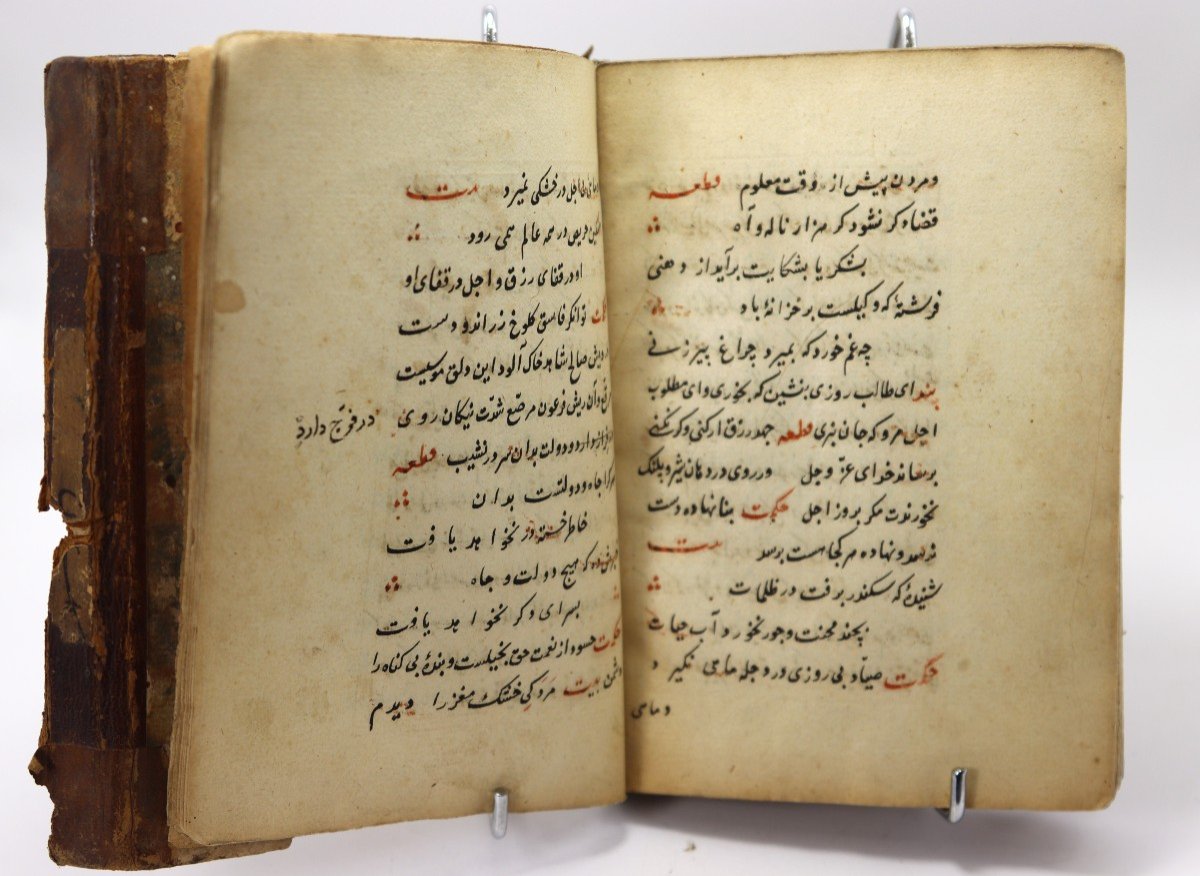 و مردن پیش از وقت معلوم قطعه
قضا دگر نشود گر هزار ناله و آه
بشکر یا بشکایت برآید از دهنی
فرشتهٔ که وکیلست بر خزانهٔ باد
چه غم خورد که بمیرد چراغ پیرزنی
پند ای طالب روزی بنشین که بخوری و ای مطلوب
اجل مرو که جان نبری قطعه جهد رزق ار کنی و گر نکنی
برساند خدای عزّ و جل ور روی در دهان شیر و پلنگ
نخورندت مگر بروز اجل حکمت بنا نهاده دست
نرسد و نهاده هر کجا هست برسد بیت
شنیدهٔ که سکندر برفت در ظلمات
بچند محنت و جور نخورد آب حیات
حکمت صیاد بی روزی در دجله ماهی نگیرد
و ماهی
اجل در خشکی نمیرد بیت
حریص در همه عالم همی رود
او در قفای رزق و اجل در قفای او
توانگر فاسق کلوخ زر اندودست
درویش صالح شاهد خاک آلود این دلق موسیست
مرقّع و آن ریش فرعون مرصّع شدت نیکان روی
در فرج دارد
دارد و دولت بدان سر در نشیب قطعه
هر کرا جاه و دولتست بدان
خاطر خسته در نخواهد یافت
که هیچ دولت و جاه
بسرای دگر نخواهد یافت
حکمت حسود از نعمت حق بخیلست و بندهٔ بی گناه را
دشمن بیت مردکی خشک مغز را دیدم